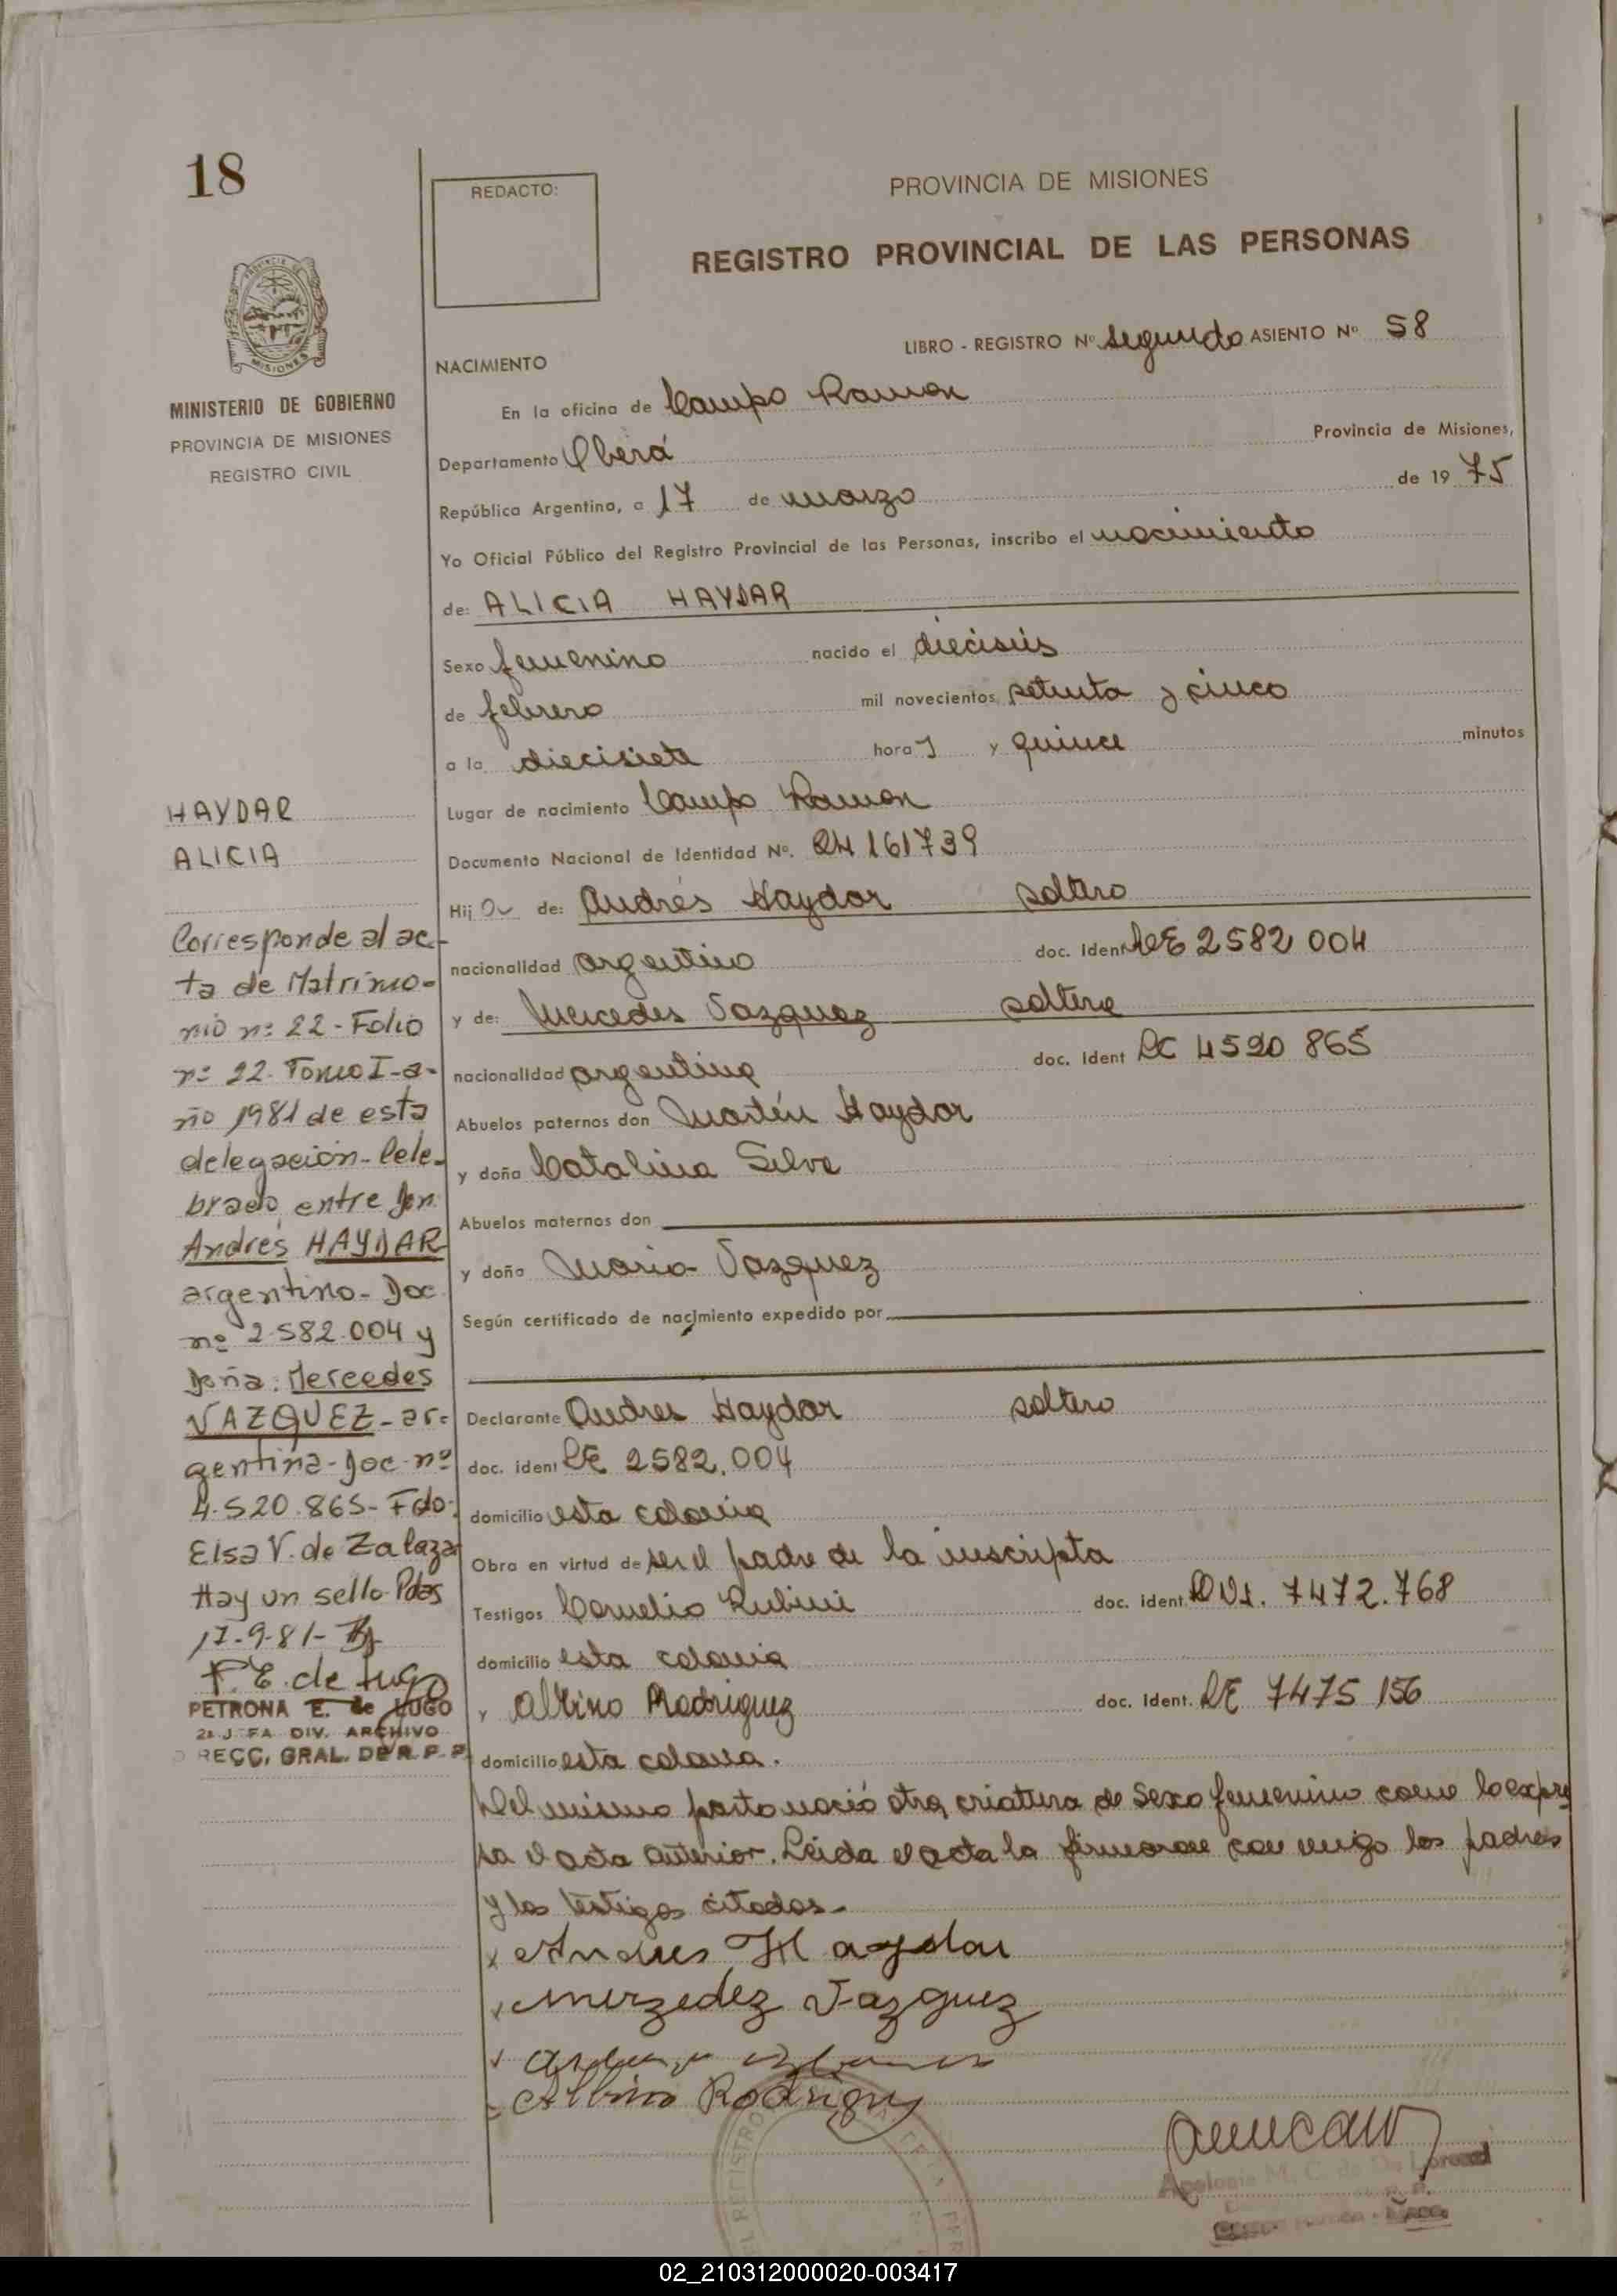 18
REDACTO:
PROVINCIA DE MISIONES
REGISTRO PROVINCIAL DE LAS PERSONAS
PROVINCIA DE
MISIONES
MINISTERIO DE GOBIERNO
PROVINCIA DE MISIONES
REGISTRO CIVIL
LIBRO - REGISTRO Nº segundo ASIENTO Nº 58
NACIMIENTO
En la oficina de Campo Ramon
Departamento Oberá Provincia de Misiones,
República Argentina, a 17 de marzo de 19 75
Yo Oficial Público del Registro Provincial de las Personas, inscribo el nacimiento
de: ALICIA HAYDAR
Sexo femenino nacido el dieciseis
de febrero mil novecientos setenta y cinco
a la diecisiete hora s y quince minutos
Lugar de nacimiento Campo Ramon
Documento Nacional de Identidad Nº. 24 161739
Hij a de: Andrés Haydar soltero
nacionalidad argentino doc. ident LE 2582 004
y de: Mercedes Vazquez soltera
nacionalidad argentina doc. Ident LC 4520 865
Abuelos paternos don Martín Haydar
y doña Catalina Silva
Abuelos maternos don
y doña Maria Vazquez
Según certificado de nacimiento expedido por
Declarante Andres Haydar soltero
doc. ident LE 2582.004
domicilio esta colonia
Obra en virtud de ser el padre de la inscripta
Testigos Cornelio Rubini doc. ident. 7472.768
domicilio esta colonia
y Albino Rodriguez doc. Ident. LE 7475 156
domicilio esta colonia.
Del mismo parto nació otra criattura de sexo femenino como lo expre
sa el acta anterior. Leida el acta la firmaron con migo los padres
y los testigos citados.-
x Andres Haydar
x Merzedez Vazguez
x Albino Rodrigue
HAYDAR
ALICIA
Corresponde al ac-
ta de Matrimo-
nio nº 22 - Folio
nº 22. Tomo I - a-
ño 1981 de esta
delegación - Cele-
brado entre Don
Andrés HAYDAR
argentino - Doc
nº 2.582.004 y
Doña: Mercedes
VAZQUEZ - ar-
gentina - Doc nº
4.520.865 - Fdo:
Elsa V. de Zalazar
Hay un sello. Pdas
17-9-81-
P. E. de Lugo
PETRONA E. de LUGO
2a JEFA DIV. ARCHIVO
DIRECC. GRAL. DE R. P. P.
Apolonia M. C. de De Lorenzi
02_210312000020-003417